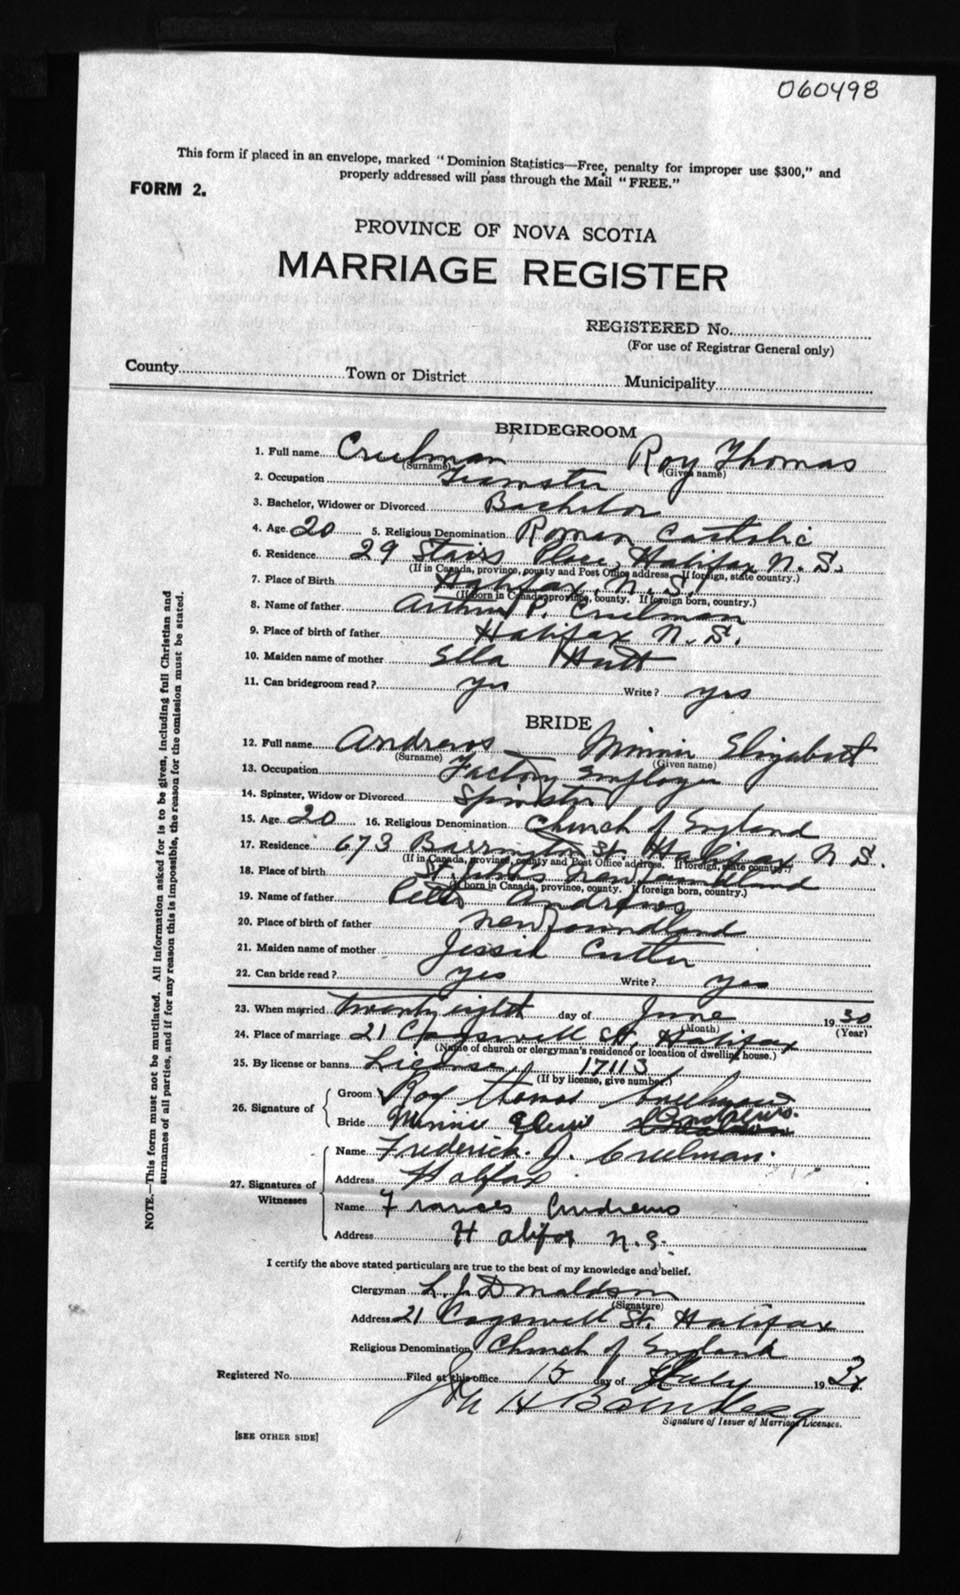 060498
This form if placed in an envelope, marked "Dominion Statistics—Free, penalty for improper use $300," and
properly addressed will pass through the Mail "FREE."
FORM 2.
PROVINCE OF NOVA SCOTIA
MARRIAGE REGISTER
REGISTERED No.
(For use of Registrar General only)
County Town or District Municipality
BRIDEGROOM
1. Full name Creelman Roy Thomas
(Surname) (Given name)
2. Occupation Teamster
3. Bachelor, Widower or Divorced Bachelor
4. Age 20 5. Religious Denomination Roman Catholic
6. Residence 29 Stairs Place, Halifax N. S.
(If in Canada, province, county and Post Office address. If foreign, state country.)
7. Place of Birth Halifax, N. S.
(If born in Canada, province, county. If foreign born, country.)
8. Name of father Arthur P. Creelman
9. Place of birth of father Halifax N. S.
10. Maiden name of mother Ella Hutt
11. Can bridegroom read? yes Write? yes
BRIDE
12. Full name Andrews Minnie Elizabeth
(Surname) (Given name)
13. Occupation Factory Employee
14. Spinster, Widow or Divorced Spinster
15. Age 20 16. Religious Denomination Church of England
17. Residence 673 Barrington St. Halifax N S.
(If in Canada, province, county and Post Office address. If foreign, state country.)
18. Place of birth St. Johns Newfoundland
(If born in Canada, province, county. If foreign born, country.)
19. Name of father Peter Andrews
20. Place of birth of father Newfoundland
21. Maiden name of mother Jessie Cutler
22. Can bride read? yes Write? yes
23. When married twenty eighth day of June 1930
(Month) (Year)
24. Place of marriage 21 Cogswell St. Halifax
(Name of church or clergyman's residence or location of dwelling house.)
25. By license or banns License 17113
(If by license, give number.)
26. Signature of
Groom Roy Thomas Creelman
Bride Minnie Andrews.
27. Signatures of Witnesses
Name Frederick. J. Creelman.
Address Halifax
Name Frances Andrews
Address Halifax N.S.
I certify the above stated particulars are true to the best of my knowledge and belief.
Clergyman L. J. Donaldson
(Signature)
Address 21 Cogswell St. Halifax
Religious Denomination Church of England
Registered No. Filed at this office 15 day of July 19
Signature of Issuer of Marriage Licenses.
[SEE OTHER SIDE]
NOTE.—This form must not be mutilated. All information asked for is to be given, including full Christian and
surnames of all parties, and if for any reason this is impossible, the reason for the omission must be stated.